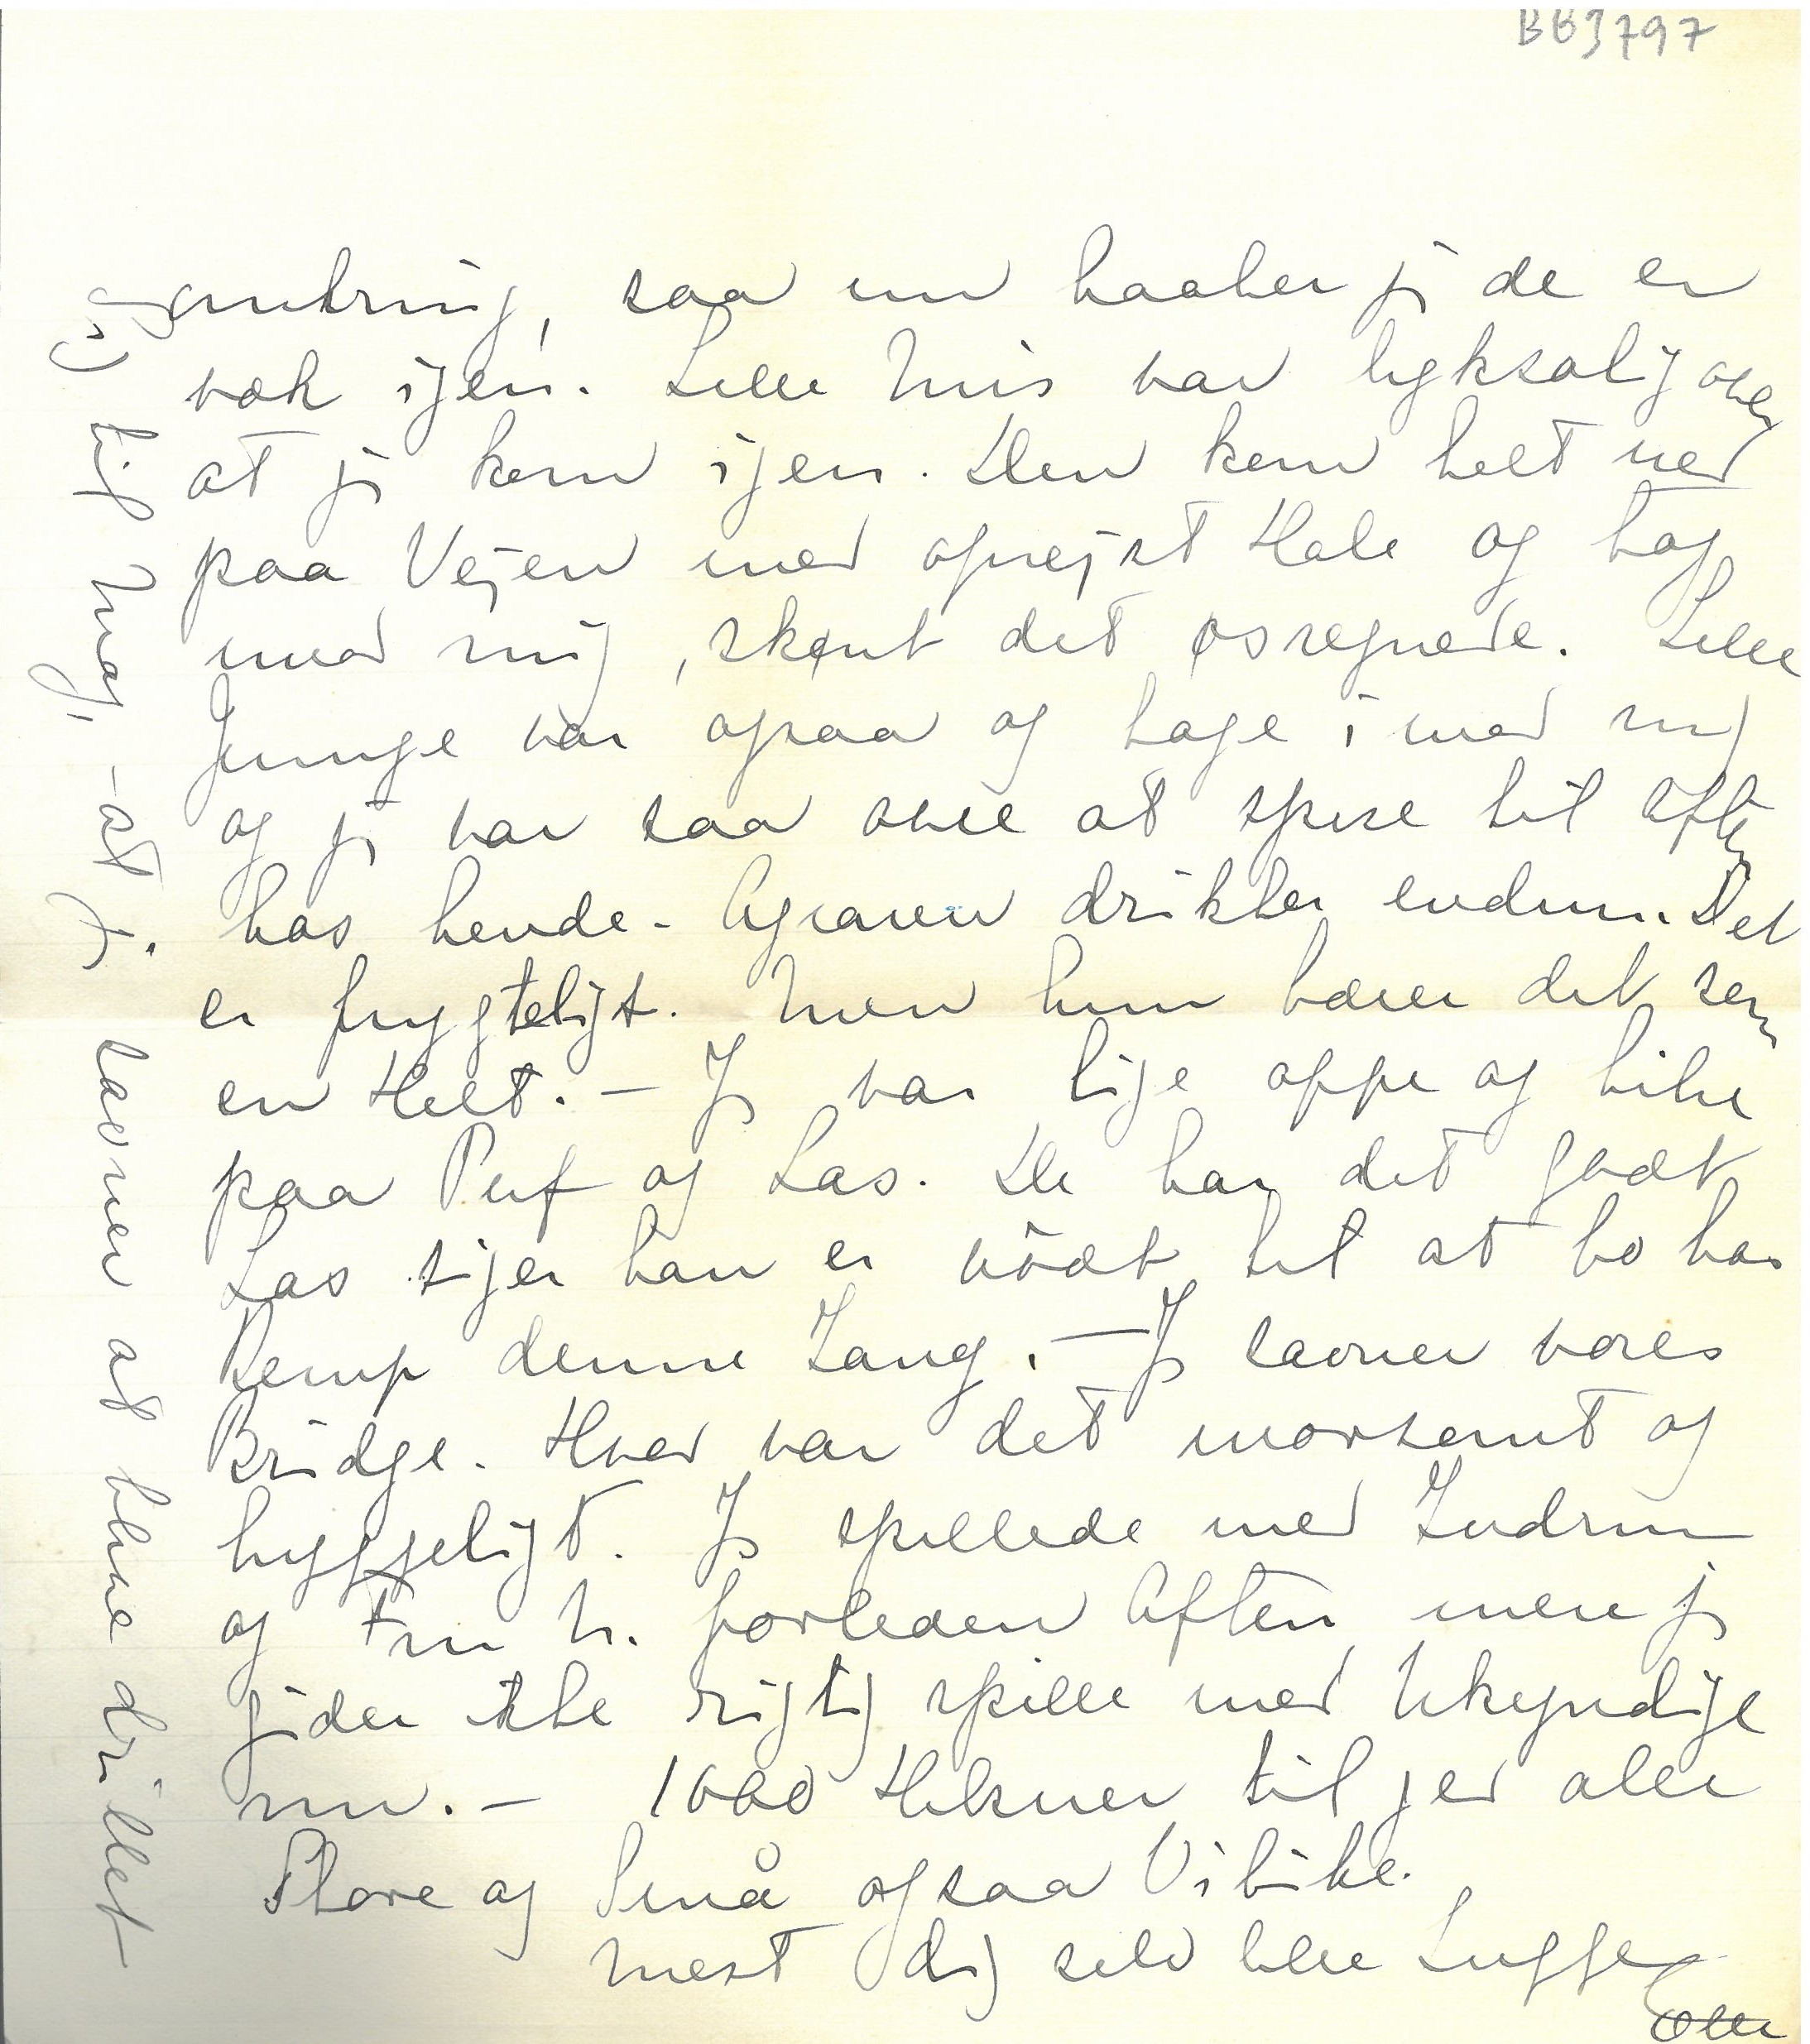 BB3797
omkring, saa nu haaber jeg de er
væk igen. Lille Mis var lyksalig over
at jeg kom igen. Den kom helt ned
paa Vejen med oprejst Hale og tog
mod mig, skønt det øsregnede. Lille
Junge var ogsaa og tage imod mig
og jeg var saa ovre at spise til Aften
hos hende. Agraren drikker endnu. Det
er frygteligt. Men hun bærer det som
en Helt. – Jeg var lige oppe og hilse
paa Puf og Las. De har det godt
Las siger han er nödt til at bo hos
Remp denne Gang. – Jeg savner vores
Bridge. Hvor var det morsomt og
hyggeligt. Jeg spillede med
og Fru M. forleden Aften, men jeg
gider ikke rigtig spille med Ukyndige
nu. – 1000 Hilsner til jer alle
Store og Små ogsaa Vibike.
Mest dig selv lille Lugge
Elle
sig til Mag, – at jeg savner at blive drillet